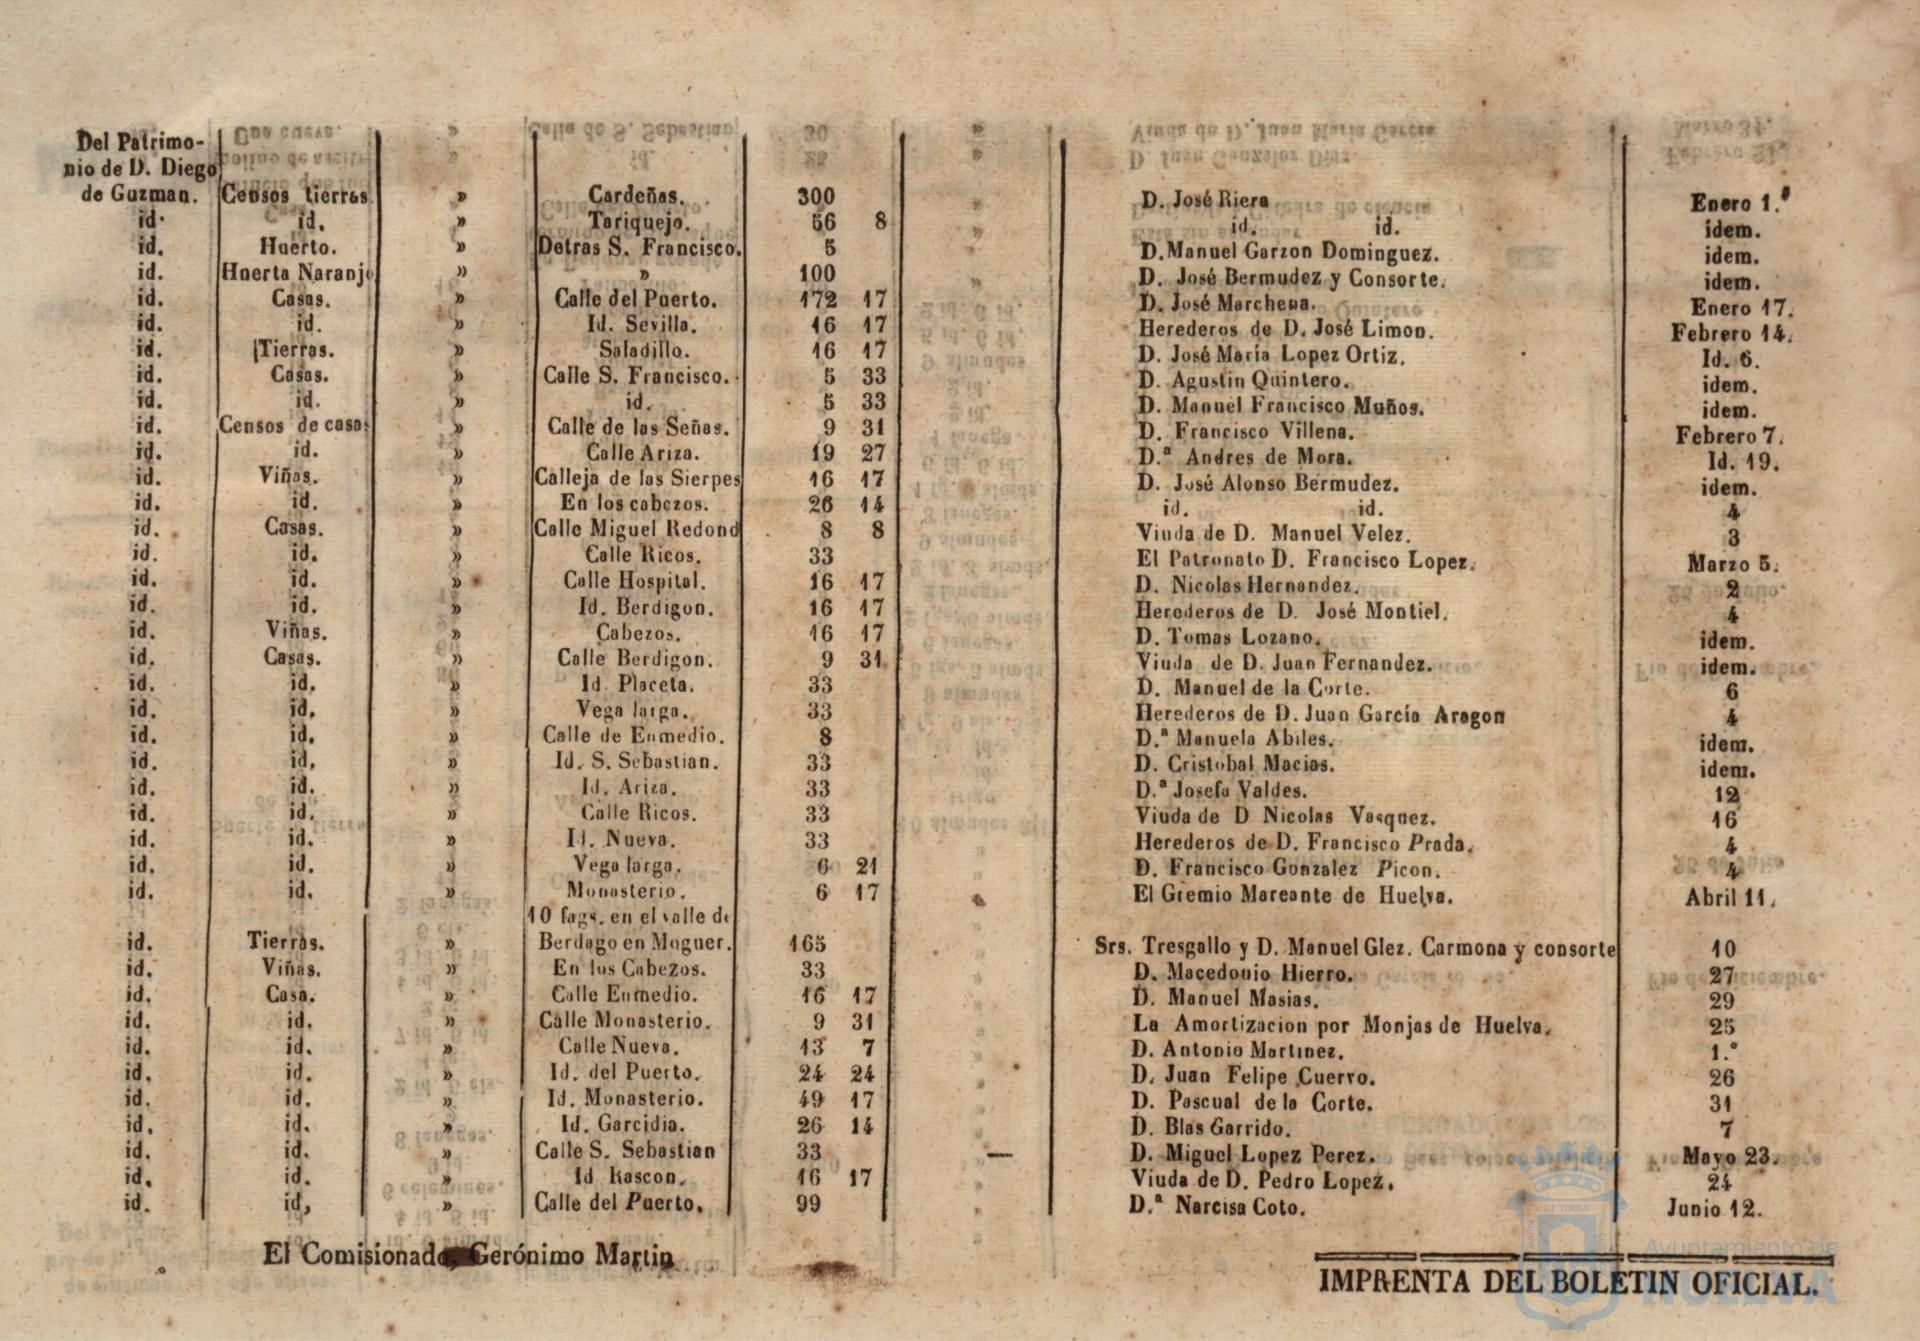 Del Patrimo-
nio de D. Diego
de Guzman. Censos tierras. » Cardeñas. 300 D. José Riera Enero 1.º
id. id. » Tariquejo. 56 8 id. id. idem.
id. Huerto. » Detras S. Francisco. 5 D. Manuel Garzon Dominguez. idem.
id. Huerta Naranjo » » 100 D. José Bermudez y Consorte. idem.
id. Casas. » Calle del Puerto. 172 17 D. José Marchena. Enero 17.
id. id. » Id. Sevilla. 16 17 Herederos de D. José Limon. Febrero 14.
id. Tierras. » Saladillo. 16 17 D. José María Lopez Ortiz. Id. 6.
id. Casas. » Calle S. Francisco. 5 33 D. Agustin Quintero. idem.
id. id. » id. 5 33 D. Manuel Francisco Muños. idem.
id. Censos de casas » Calle de las Señas. 9 31 D. Francisco Villena. Febrero 7.
id. id. » Calle Ariza. 19 27 D.ª Andres de Mora. Id. 19.
id. Viñas. » Calleja de las Sierpes 16 17 D. José Alonso Bermudez. idem.
id. id. » En los cabezos. 26 14 id. id. 4
id. Casas. » Calle Miguel Redond 8 8 Viuda de D. Manuel Velez. 3
id. id. » Calle Ricos. 33 El Patronato D. Francisco Lopez. Marzo 5.
id. id. » Calle Hospital. 16 17 D. Nicolas Hernandez. 2
id. id. » Id. Berdigon. 16 17 Herederos de D. José Montiel. 4
id. Viñas. » Cabezos. 16 17 D. Tomas Lozano. idem.
id. Casas. » Calle Berdigon. 9 31 Viuda de D. Juan Fernandez. idem.
id. id. » Id. Placeta. 33 D. Manuel de la Corte. 6
id. id. » Vega larga. 33 Herederos de D. Juan García Aragon 4
id. id. » Calle de Enmedio. 8 D.ª Manuela Abiles. idem.
id. id. » Id. S. Sebastian. 33 D. Cristobal Macias. idem.
id. id. » Id. Ariza. 33 D.ª Josefa Valdes. 12
id. id. » Calle Ricos. 33 Viuda de D Nicolas Vasquez. 16
id. id. » Id. Nueva. 33 Herederos de D. Francisco Prada. 4
id. id. » Vega larga. 6 21 D. Francisco Gonzalez Picon. 4
id. id. » Monasterio. 6 17 El Gremio Mareante de Huelva. Abril 11.
10 fags. en el valle de
id. Tierras. » Berdago en Moguer. 165 Srs. Tresgallo y D. Manuel Glez. Carmona y consorte 10
id. Viñas. » En los Cabezos. 33 D. Macedonio Hierro. 27
id. Casa. » Calle Enmedio. 16 17 D. Manuel Masias. 29
id. id. » Calle Monasterio. 9 31 La Amortizacion por Monjas de Huelva. 25
id. id. » Calle Nueva. 13 7 D. Antonio Martinez. 1.º
id. id. » Id. del Puerto. 24 24 D. Juan Felipe Cuervo. 26
id. id. » Id. Monasterio. 49 17 D. Pascual de la Corte. 31
id. id. » Id. Garcidia. 26 14 D. Blas Garrido. 7
id. id. » Calle S. Sebastian 33 — D. Miguel Lopez Perez. Mayo 23.
id. id. » Id Rascon. 16 17 Viuda de D. Pedro Lopez. 24
id. id, » Calle del Puerto. 99 D.ª Narcisa Coto. Junio 12.
El Comisionado, Gerónimo Martin
IMPRENTA DEL BOLETIN OFICIAL.
Ayuntamiento de
HUELVA